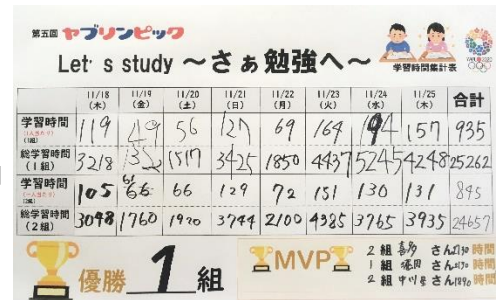 第五回 ヤブリンピック
Let's study ～さぁ勉強へ～
学習時間集計表
11/18 (木) 11/19 (金) 11/20 (土) 11/21 (日) 11/22 (月) 11/23 (火) 11/24 (水) 11/25 (木) 合計
学習時間 (1人当たり) (1組) 119 49 56 127 69 164 194 157 935
総学習時間 (1組) 3218 1517 3425 1850 4437 5245 4248 25262
学習時間 (一人当たり) (2組) 105 66 66 129 72 151 130 131 845
総学習時間 (2組) 3048 1760 1920 3744 2100 4385 3765 3935 24657
優勝 1組
MVP
2組 喜多 さん 時間
1組 さん 時間
2組 さん 時間